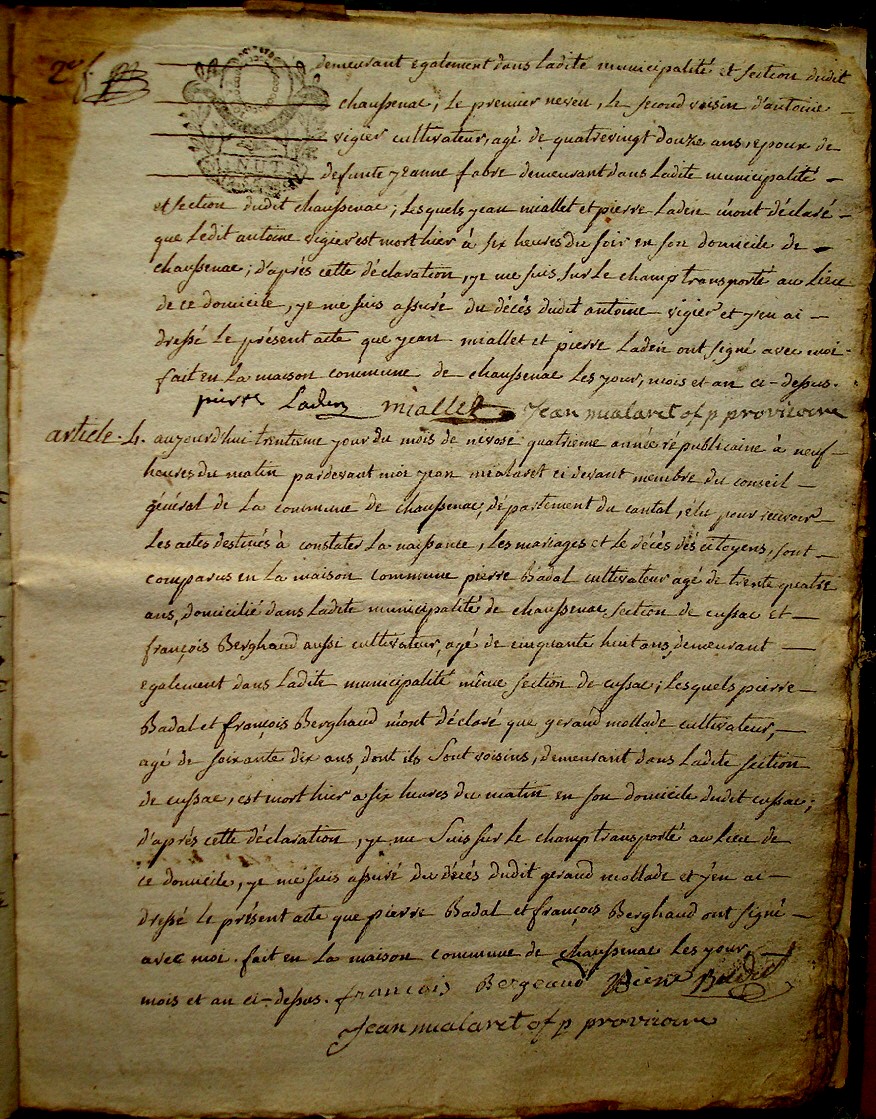 2e f.
MINUTE
demeurant egalement dans Ladite municipalité et section dudit
chaussenac, Le premier neveu, Le second voisin d'antoine
vigier cultivateur, agé de quatrevingt douze ans, epoux de
defunte jeanne fabre demeurant dans Ladite municipalité
et section dudit chaussenac; Lesquels jean miallet et pierre Laden m'ont déclaré
que Ledit antoine vigier est mort hier à six heures du soir en son domicile de
chaussenac; d'après cette déclaration, je me suis sur Le champ transporté au Lieu
de ce domicile, je me suis assuré du décès dudit antoine vigier et j'en ai
dressé Le présent acte que jean miallet et pierre Laden ont signé avec moi.
fait en La maison commune de chaussenac Les jour, mois et an ci-dessus.
pierre Laden miallet Jean malaret of p provisoire
article. 4. aujourd'hui trentieme jour du mois de nivose quatrieme année républicaine à neuf
heures du matin pardevant moi jean mialaret ci devant membre du conseil
général de La commune de chaussenac, département du cantal, élu pour recevoir
Les actes destinés à constater La naissance, Les mariages et Le décès des citoyens, sont
comparus en La maison commune pierre Badal cultivateur agé de trente quatre
ans, domicilié dans Ladite municipalité de chaussenac section de cussac et
françois Berghaud aussi cultivateur, agé de cinquante huit ans, demeurant
egalement dans Ladite municipalité même section de cussac; Lesquels pierre
Badal et françois Berghaud m'ont déclaré que geraud mollade cultivateur,
agé de soixante dix ans, dont ils sont voisins, demeurant dans Ladite section
de cussac, est mort hier a six heures du matin en son domicile dudit cussac;
d'après cette déclaration, je me suis sur Le champ transporté au Lieu de
ce domicile, je me suis assuré du décès dudit geraud mollade et j'en ai
dressé Le présent acte que pierre Badal et françois Berghaud ont signé
avec moi. fait en La maison commune de chaussenac Les jour,
mois et an ci-dessus. francois Bergeaud
Jean malaret of p provisoire